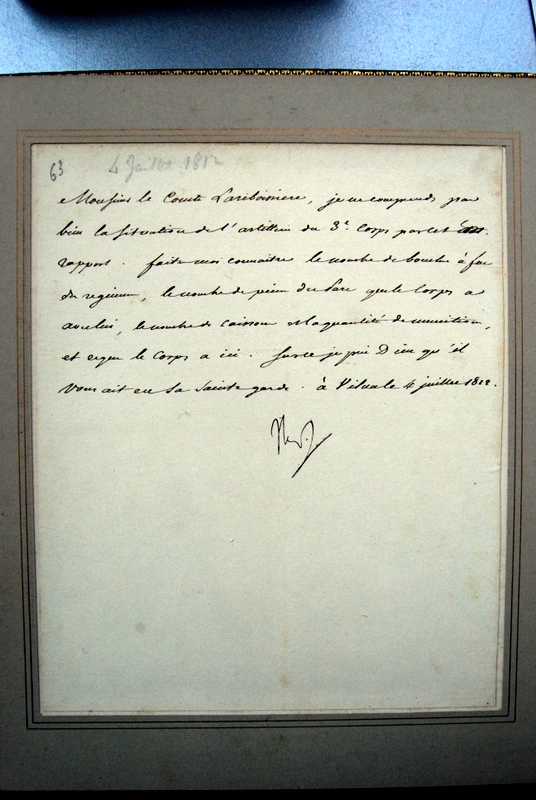 63
4 Juillet 1812
Monsieur le Comte Lariboissiere, je ne comprends pas
bien la situation de l'artillerie du 3e Corps par cet
rapport. faites moi connaître le nombre de bouches à feu
du regiment, le nombre de pieces du parc que le Corps a
avec lui, le nombre de caissons et la quantité de munitions,
et ce que le Corps a ici. Sur ce je prie Dieu qu'il
vous ait en sa sainte garde. à Vilna le 4 juillet 1812.
Nap.